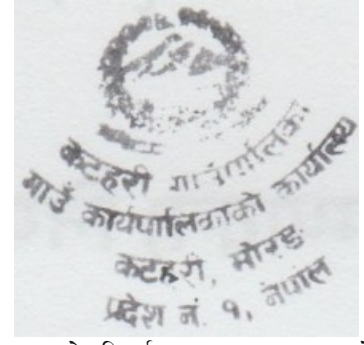 कटहरी गाउँपालिका
गाउँ कार्यपालिकाको कार्यालय
कटहरी, मोरङ
प्रदेश नं. १, नेपाल